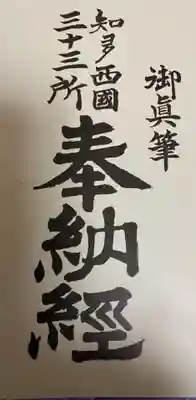 御眞筆
奉納經
知多西國
三十三所